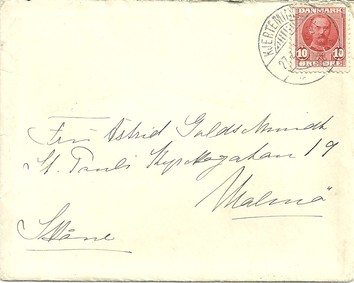 KJERTEMI
DANMARK
10 10
ØRE ØRE
Fru Astrid Goldschmidt
St. Pauli Kyrkogatan 19
Malmö
Skåne